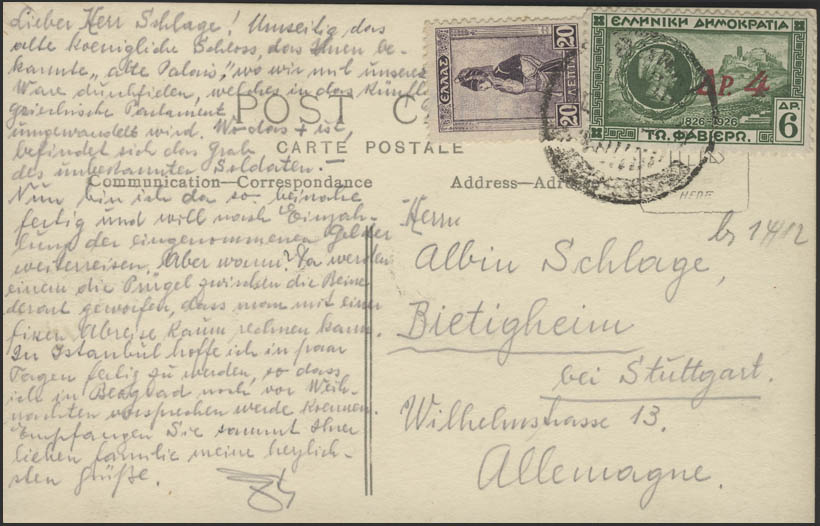 Lieber Herr Schlage! Umseitig das
alte koenigliche Schloss, das Ihnen be-
kannte „alte Palais", wo wir mit unserer
Ware durchfielen, welches in das künft.
griechische Parlament
umgewandelt wird. Wo das + ist,
befindet sich das Grab
des unbekannten Soldaten. —
Nun bin ich da so beinahe
fertig und will nach Einzah-
lung der eingenommenen Gelder
weiterreisen. Aber wann? Da werden
einem die Prügel zwischen die Beine
derart geworfen, dass man mit einer
fixen Abreise kaum rechnen kann.
In Istanbul hoffe ich in paar
Tagen fertig zu werden, so dass
ich in Beograd noch vor Weih-
nachten vorsprechen werde koennen.
Empfangen Sie sammt Ihrer
lieben Familie meine herzlich-
sten Grüße.
POST CA
CARTE POSTALE
Communication—Correspondance
Address—Adr
HERE
ΕΛΛΑΣ
20
ΛΕΠΤΑ
20
ΕΛΛΗΝΙΚΗ ΔΗΜΟΚΡΑΤΙΑ
ΔΡ 4
1826-1926
ΤΩ. ΦΑΒΙΕΡΩ.
ΔΡ.
6
Herrn
Albin Schlage,
Bietigheim
bei Stuttgart.
Wilhelmstrasse 13.
Allemagne.